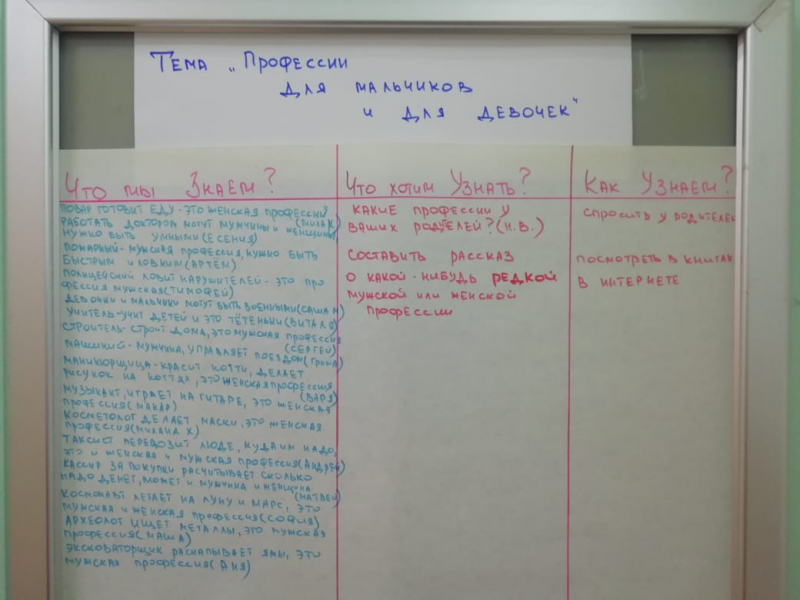 Тема „Профессии
для мальчиков
и для девочек"
Что мы Знаем?
повар готовит еду - это женская профессий
(Милах)
работать доктором могут мужчины и женщины
нужно быть умными (Есения)
пожарный - мужская профессия, нужно быть
быстрым и ловким (Артём)
полицейский ловит нарушителей - это про
фессия мужская (Тимофей)
девочки и мальчики могут быть военными (Саша М)
учитель - учит детей и это тётеньки (Виталя)
строитель - строит дома, это мужская профессия
(Сергей)
машинист - мужчина, управляет поездом (Гриша)
маникюрщица - красит ногти, делает
рисунок на ногтях, это женская профессия
(Варя)
музыкант, играет на гитаре, это женская
профессия (Макар)
косметолог делает маски, это женская
профессия (Милана Х)
таксист перевозит люде, куда им надо,
это и женская и мужская профессия (Андрей)
кассир за покупки расчитывает сколько
надо денег, может и мужчина и женщина
(Матвей)
космонавт летает на луну и марс, это
мужская и женская профессия (София)
археолог ищет металлы, это мужская
профессия (Маша)
эксковаторщик раскапывает ямы, это
мужская профессия (Аня)
Что хотим Узнать?
какие профессии у
ваших родителей? (Н.В.)
составить рассказ
о какой-нибудь редкой
мужской или женской
профессии
Как Узнаем?
спросить у родителей
посмотреть в книгах
в интернете